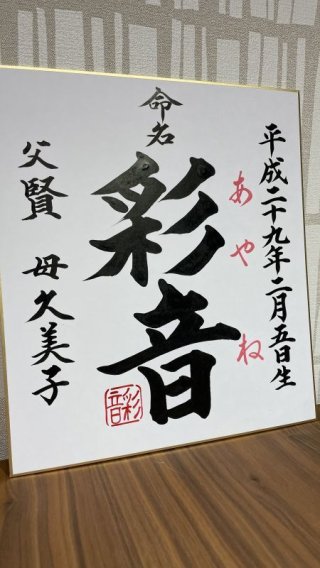 平成二十九年二月五日生
命名
彩音
あやね
父賢 母久美子
彩音